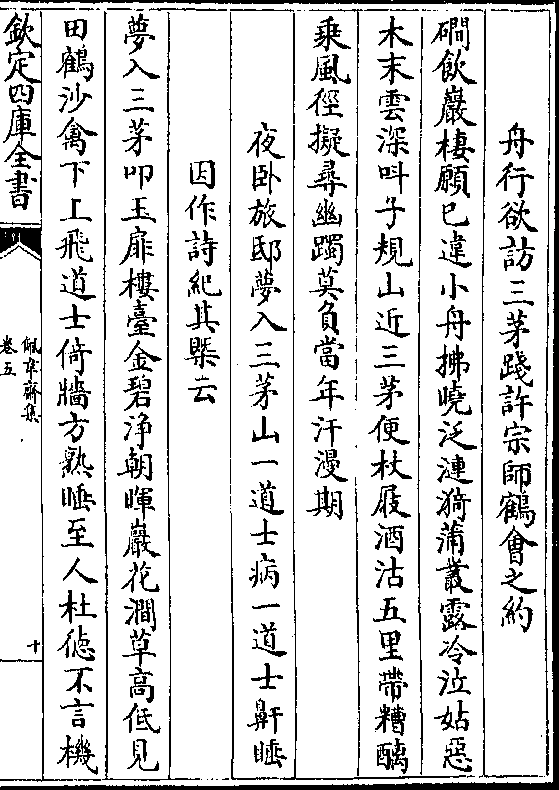 舟行欲訪三茅踐許宗師鶴會之約
磵飲巖棲願已違小舟拂曉泛漣漪蒲叢露冷泣姑惡
木末雲深呌子規山近三茅便杖屐酒沽五里帶糟醨
乘風徑擬尋幽躅莫負當年汗漫期
夜卧旅邸夢入三茅山一道士病一道士鼾睡
因作詩紀其槩云
夢入三茅叩玉扉樓臺金碧浄朝暉巖花澗草高低見
田鶴沙禽下上飛道士倚牆方熟睡至人杜徳不言機
欽定四庫全書
佩韋齋集
卷五
十